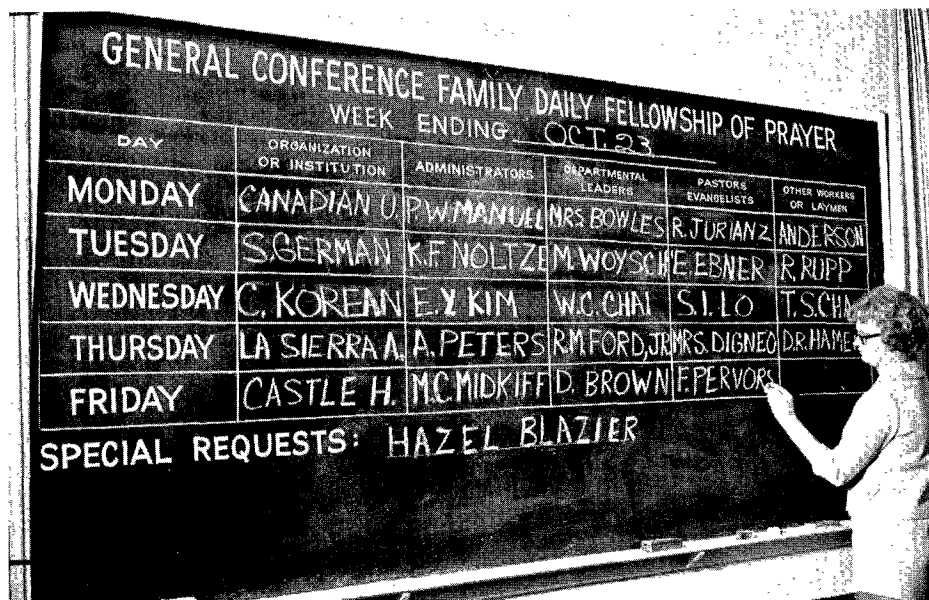 GENERAL CONFERENCE FAMILY DAILY FELLOWSHIP OF PRAYER
WEEK ENDING OCT. 23
DAY ORGANIZATION OR INSTITUTION ADMINISTRATORS DEPARTMENTAL LEADERS PASTORS EVANGELISTS OTHER WORKERS OR LAYMEN
MONDAY CANADIAN U. P.W MANUEL MRS BOWLES R. JURIANZ ANDERSON
TUESDAY S. GERMAN K.F NOLTZE M. WOYSCH E. EBNER R. RUPP
WEDNESDAY C. KOREAN E.Y. KIM W.C. CHAI S.I. LO T.S. CHA
THURSDAY LA SIERRA A. A. PETERS R.M. FORD, JR MRS. DIGNEO D.R. HAME
FRIDAY CASTLE H. M.C. MIDKIFF D. BROWN F. PERVORS
SPECIAL REQUESTS: HAZEL BLAZIER